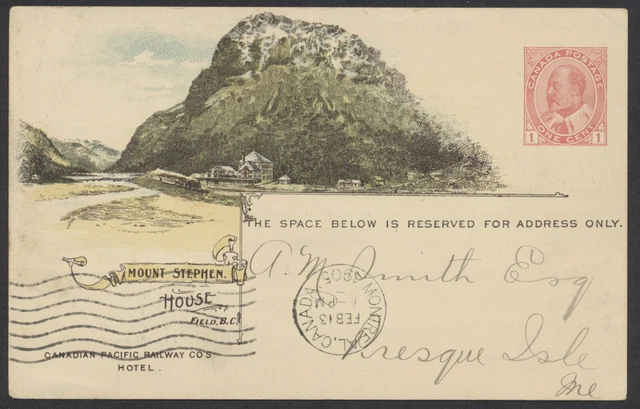 CANADA POSTAGE
1 ONE CENT 1
THE SPACE BELOW IS RESERVED FOR ADDRESS ONLY.
MOUNT STEPHEN.
HOUSE
FIELD, B.C.
CANADIAN PACIFIC RAILWAY CO'S
HOTEL.
A. M. Smith Esq
Presque Isle
Me
MONTREAL, CANADA
FEB 13
6-PM
1905